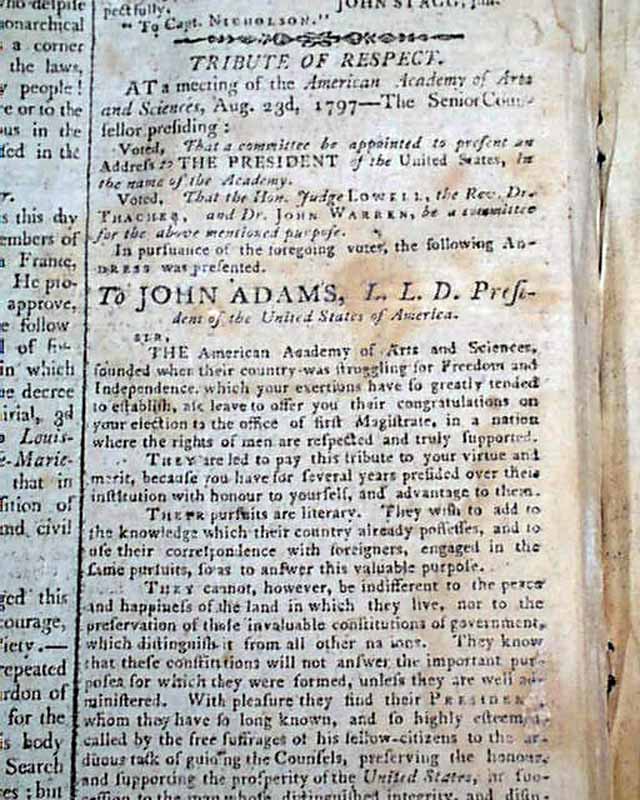 who despise
monarchical
s a corner
the laws,
y people!
re or to the
ous in the
ssed in the
r.
s this day
embers of
a France,
He pro-
approve,
e follow
l of
in which
he decree
irial, 3d
o Louis-
e-Marie-
that in
sition of
and civil
ged this
courage,
iety.—
repeated
ardon of
for the
is body
Search
es; but
pectfully,
JOHN STAGG, jun.
"To Capt. NICHOLSON."
TRIBUTE OF RESPECT.
AT a meeting of the American Academy of Arts
and Sciences, Aug. 23d, 1797—The Senior Coun-
sellor presiding:
Voted, That a committee be appointed to present an
Address to THE PRESIDENT of the United States, in
the name of the Academy.
Voted, That the Hon. Judge LOWELL, the Rev. Dr.
THACHER, and Dr. JOHN WARREN, be a committee
for the above mentioned purpose.
In pursuance of the foregoing votes, the following AD-
DRESS was presented.
To JOHN ADAMS, L. L. D. Presi-
dent of the United States of America.
SIR,
THE American Academy of Arts and Sciences,
founded when their country was struggling for Freedom and
Independence, which your exertions have so greatly tended
to establish, ask leave to offer you their congratulations on
your election to the office of first Magistrate, in a nation
where the rights of men are respected and truly supported.
THEY are led to pay this tribute to your virtue and
merit, because you have for several years presided over their
institution with honour to yourself, and advantage to them.
THEIR pursuits are literary. They wish to add to
the knowledge which their country already possesses, and to
use their correspondence with foreigners, engaged in the
same pursuits, so as to answer this valuable purpose.
THEY cannot, however, be indifferent to the peace
and happiness of the land in which they live, nor to the
preservation of those invaluable constitutions of government,
which distinguish it from all other nations. They know
that these constitutions will not answer the important pur-
poses for which they were formed, unless they are well ad-
ministered. With pleasure they find their PRESIDENT,
whom they have so long known, and so highly esteem,
called by the free suffrages of his fellow-citizens to the ar-
duous task of guiding the Counsels, preserving the honour,
and supporting the prosperity of the United States, as suc-
cession to the man whose distinguished integrity, and disin-